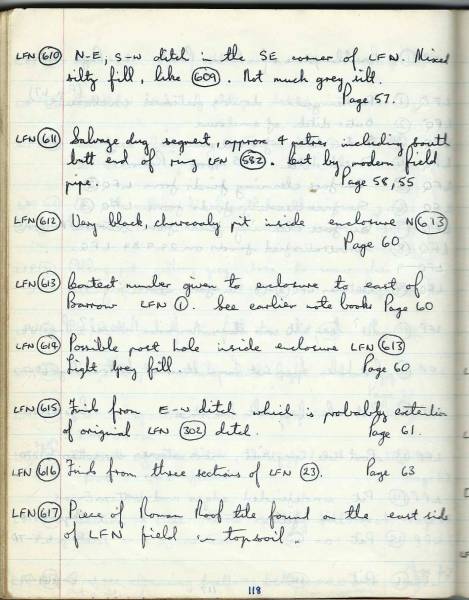 LFN (610) N-E, S-W ditch in the SE corner of LFN. Mixed
silty fill, like (609). Not much grey silt.
Page 57.
LFN (611) Salvage dug segment, approx 4 metres including south
butt end of ring LFN (582). Cut by modern field
pipe. Page 58,55
LFN (612) Very black, charcoaly pit inside enclosure N(613)
Page 60
LFN (613) Context number given to enclosure to east of
Barrow LFN (1). See earlier note books Page 60
LFN (614) Possible post hole inside enclosure LFN (613)
Light grey fill. Page 60
LFN (615) Finds from E-W ditch which is probably extention
of original LFN (302) ditch. Page 61.
LFN (616) Finds from three sections of LFN (23). Page 63
LFN (617) Piece of Roman Roof tile found on the east side
of LFN field in topsoil.
118